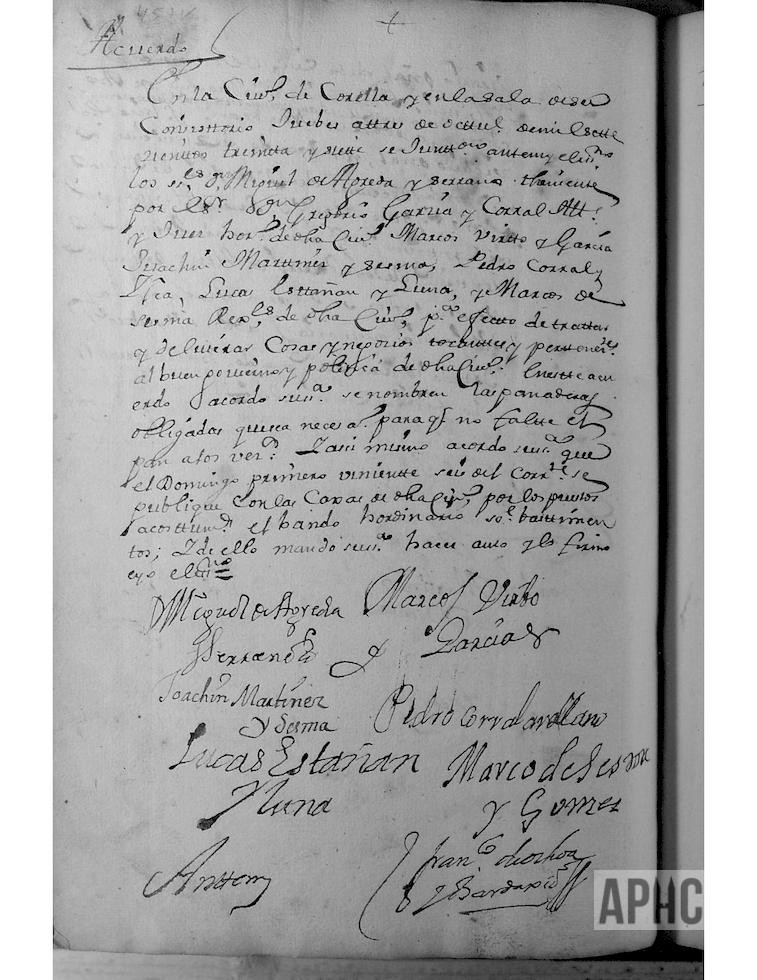 Acuerdo
En la Ciud. de Corella y en la sala de su
Conssittorio Juebes attres de octtue. de mil sette
zientos treintta y siette se Juntt.on antemy el ess.no
los ss.es Dn. Miguel de Agreda y serrano theniente
por el Sr. Dn. Gregorio Garcia y Corral Alle.
y Juez hor. de dha Ciud. Marcos Virtto y Garcia
Juachin Marttinez y sesma, Pedro Corral y
Lucas Esttañan y Luna, y Marcos de
sesma Rex.es de dha Ciud. p.a efectto de trattar
y deliverar Cosas y negozios tocanttes y perttenez.tes
al buen govierno y polizia de dha Ciud. En estte acu
erdo acordo sus.a se nombren las panaderas
obligadas que sea neces.a para q. no falte el
pan a los vez.s Y assi mismo acordo sus.a que
el Domingo primero vinientte seis del Corr.te se
publique con las Caxas de dha Ciud. por los puestos
acosttum.s el bando hordinario so.e bastimen
tos; Y de ello mando sus.a hacer auto y lo firmo
e yo el ess.no =
Dn Miguel de Agreda Marcos Virto
y Serrano y Garcia
Joachin Martinez
y Sesma Pedro Corral
Lucas Estañan Marco de Sesma
y Luna y Gomez
Anttemy Fran.co de ochoa
APHC